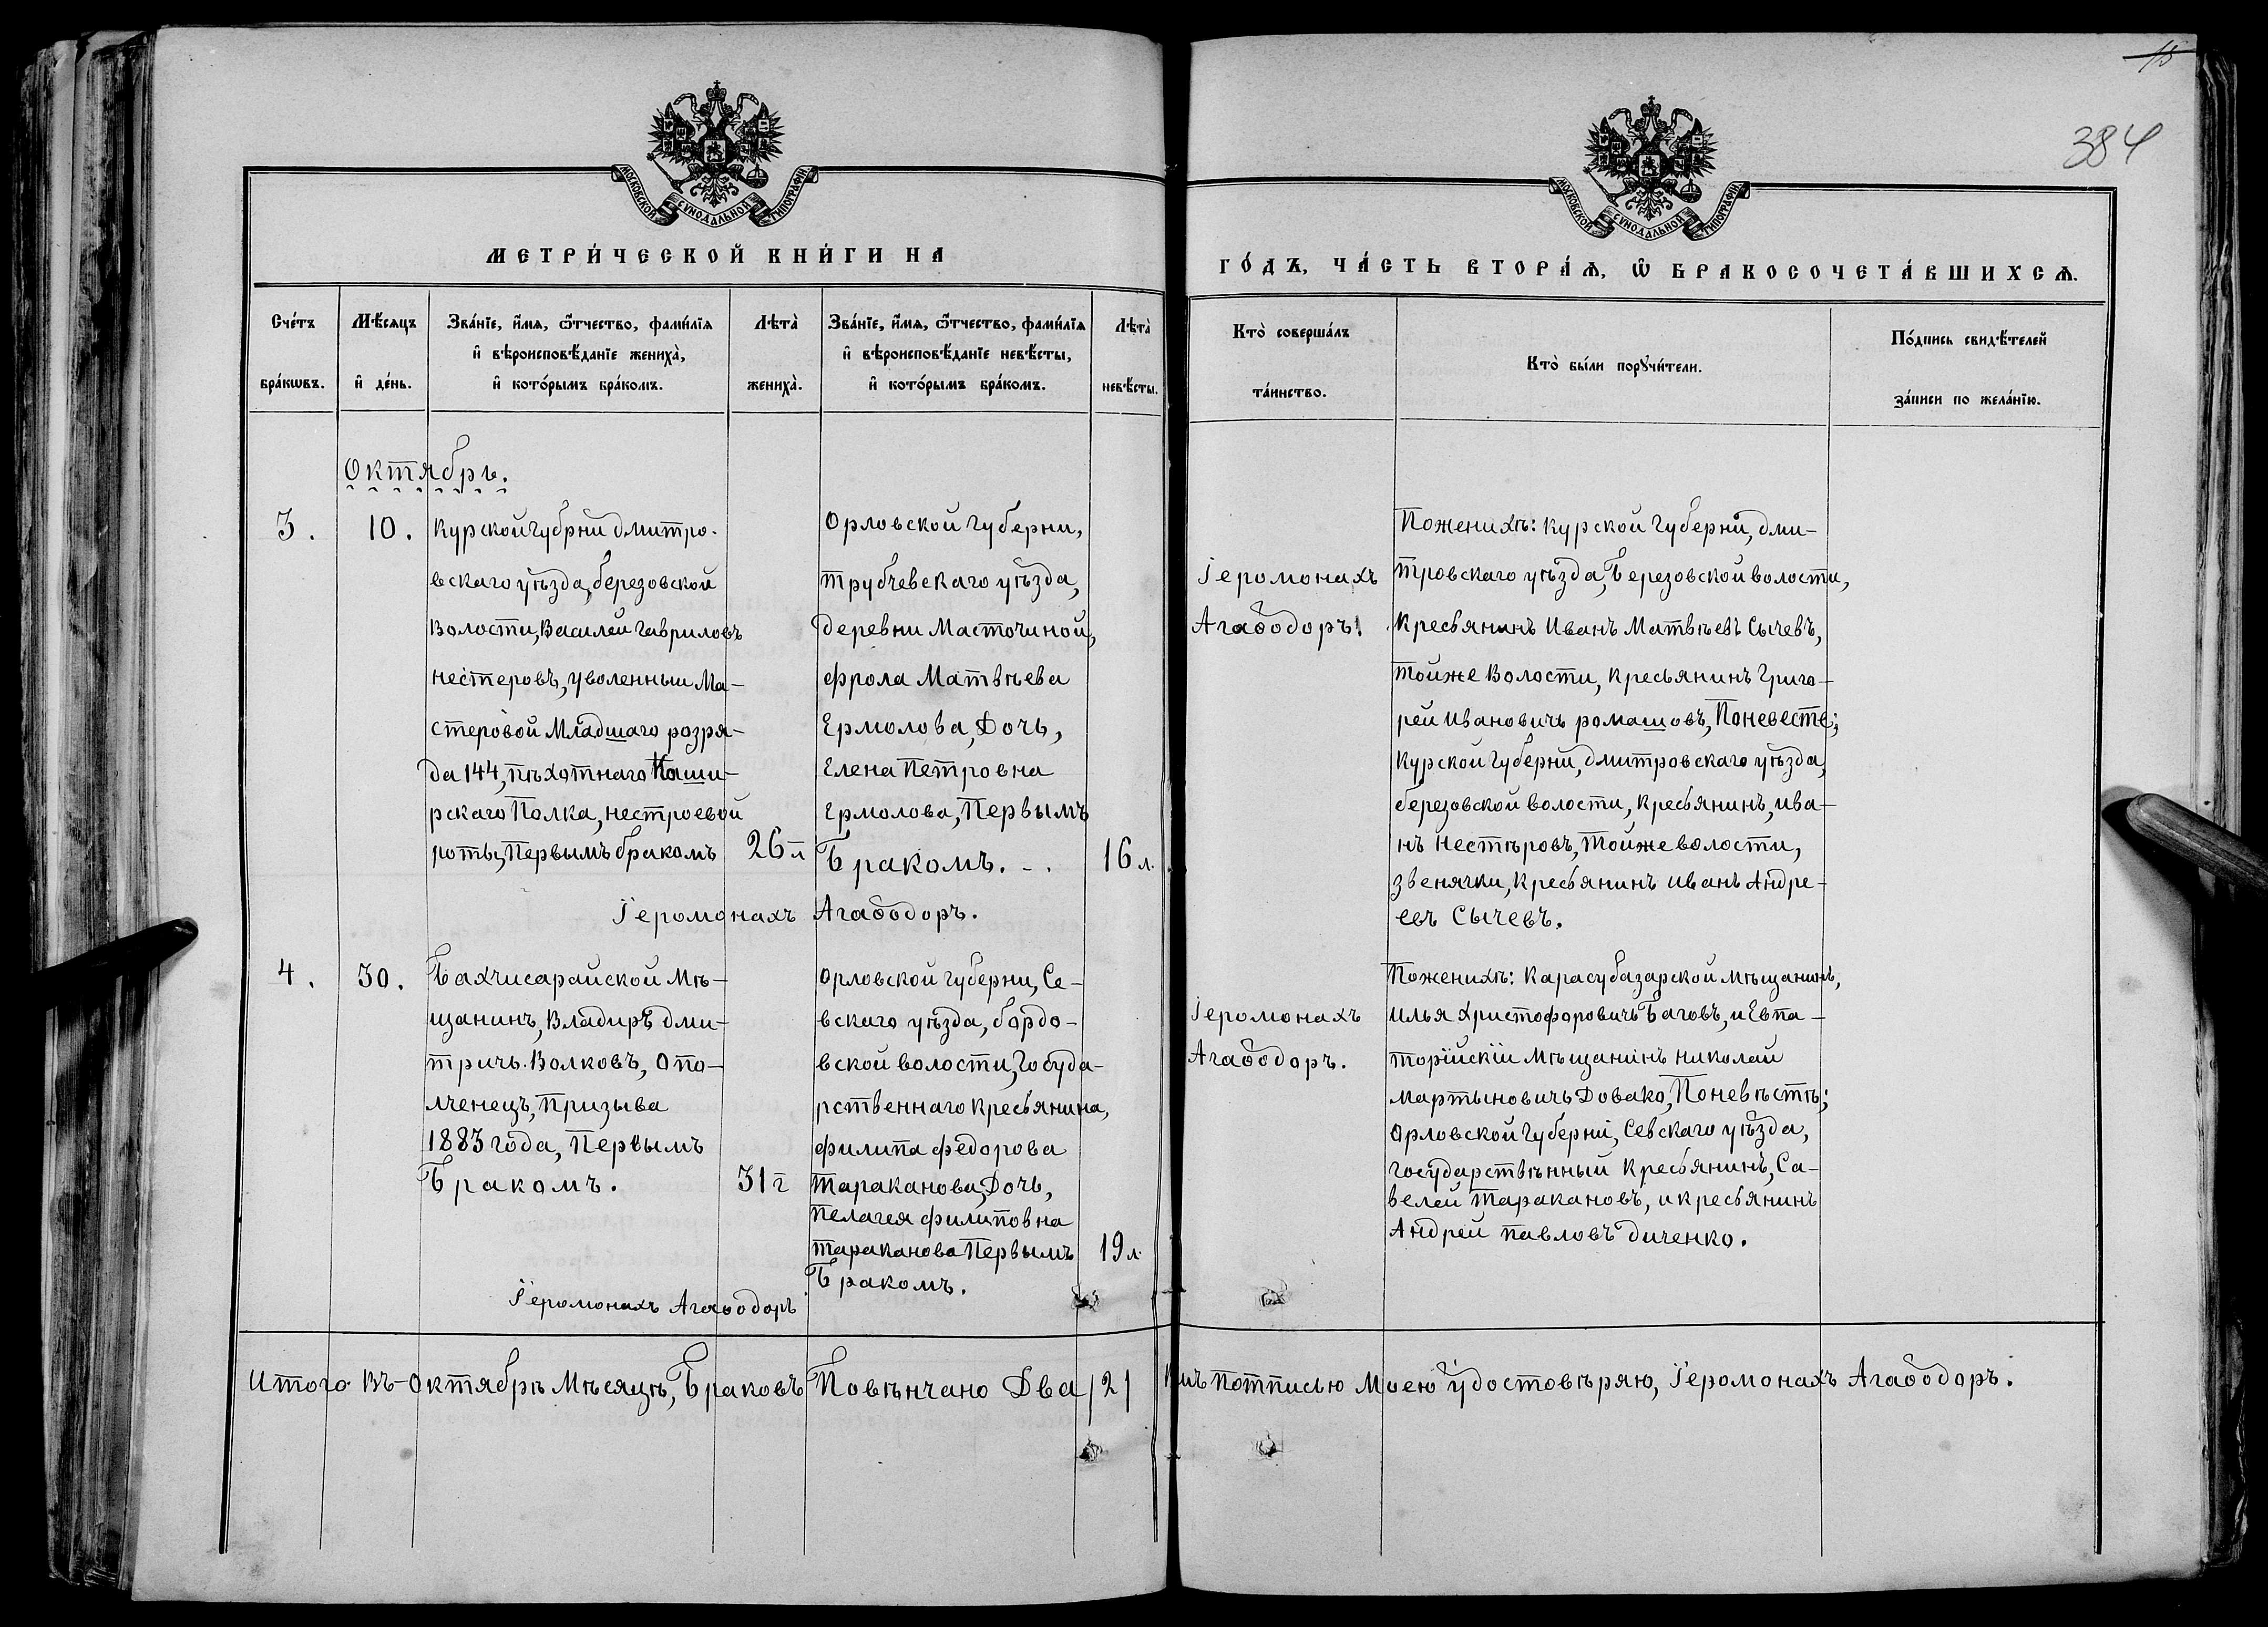 15
384
МОСКОВСКОЙ СУНОДАЛЬНОЙ ТИПОГРАФІИ
МОСКОВСКОЙ СУНОДАЛЬНОЙ ТИПОГРАФІИ
МЕТРИ́ЧЕСКОЙ КНИ́ГИ НА
ГО́ДЪ, ЧА́СТЬ ВТОРА́Ѧ, Ѡ҆ БРАКОСОЧЕТА́ВШИХСѦ.
Сче́тъ
бра́кѡвъ.
Мѣ́сяцъ
и҆ де́нь.
Зва́нїе, и҆́мѧ, ѻ҆́тчество, фами́лїѧ
и҆ вѣроисповѣ́данїе жениха̀,
и҆ кото́рымъ бра́комъ.
Лѣта̀
жениха̀.
Зва́нїе, и҆́мѧ, ѻ҆́тчество, фами́лїѧ
и҆ вѣроисповѣ́данїе невѣ́сты,
и҆ кото́рымъ бра́комъ.
Лѣта̀
невѣ́сты.
Кто̀ соверша́лъ
та́инство.
Кто̀ бы́ли порꙋчи́тели.
По́дпись свидѣ́телей
за́писи по жела́нїю.
Октябрь.
3.
10.
Курской губрнй дмитро-
вскаго уѣзда, березовской
Волости, Василей гавриловъ
нестеровъ, уволенныи Ма-
стеровой Младшаго розря-
да 144, пѣхотнаго Каши-
рскаго Полка, нестроевой
роты, Первымъ бракомъ
26 л
Орловской губерни,
трубчевскаго уѣзда,
Деревни Масточиной,
фрола Матвѣева
Ермолова, Дочь,
Елена Петровна
Ермолова, Первымъ
Бракомъ. - .
16 л.
Іеромонахъ Агаѳодоръ.
Іеромонахъ
Агаѳодоръ.
Поженихѣ: курской губерни, дми-
тровскаго уѣзда, Березовской волости,
Кресьянинъ Иванъ Матвѣевъ Сычевъ,
тойже Волости, кресьянинъ Григо-
рей Ивановичъ ромашовъ, Поневесте;
Курской губерни, дмитровскаго уѣзда,
березовской волости, кресьянинъ, ива-
нъ Нестѣровъ, Тойже волости,
звенячки, кресьянинъ иванъ Андре-
евъ Сычевъ.
4.
30.
Бахчисарайской мѣ-
щанинъ, Владиръ дми-
тричъ. Волковъ, Опо-
лченецъ, Призыва
1883 года, Первымъ
Бракомъ.
31 г
Орловской губерни, Се-
вскаго уѣзда, бордо-
вской волости, Госуда-
рственнаго Кресьянина,
филипа федорова
тараканова, Дочь,
пелагея филиповна
тараканова Первымъ
Бракомъ.
19 л.
Іеромонахъ Агаѳодоръ
Іеромонахъ
Агаѳодоръ.
Поженихѣ: Карасубазарской Мѣщанинъ,
Илья Христофоровичъ Баговъ, и Евпа-
торійскіи мѣщанінъ николай
мартыновичъ Довако, Поневѣстѣ;
Орловской губерни, Севскаго уѣзда,
государствѣнный кресьянинъ, Са-
велей таракановъ, и кресьянинъ
Андрей павловъ диченко.
Итого въ-октябрѣ мѣсяцѣ, Браковъ Повѣнчано Два /2/
потписью Моею удостовѣряю, Іеромонахъ Агаѳодоръ.